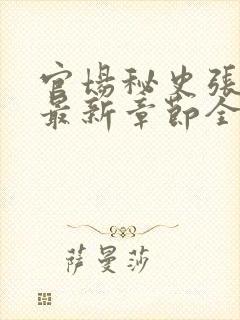 官场秘史張
最新章節全
萨曼莎